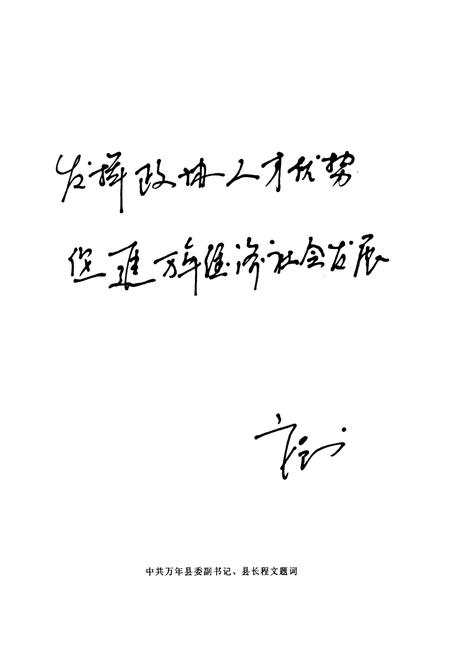 发挥政协人才优势
促进万年经济社会发展
中共万年县委副书记、县长程文题词